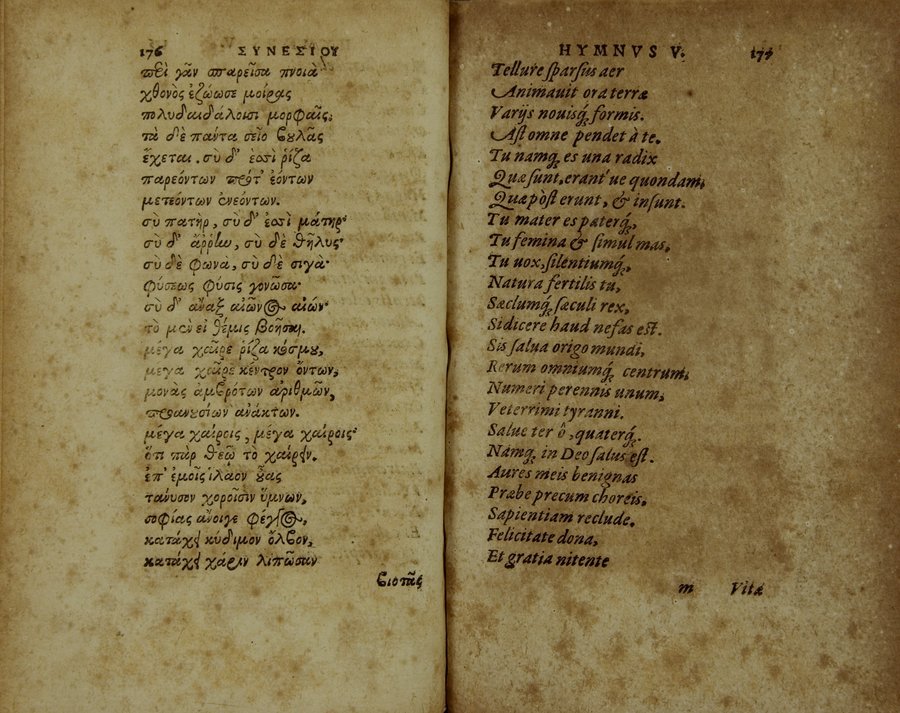 176 ΣΥΝΕΣΙΟΥ
περὶ γᾶν σπαρεῖσα πνοιὰ
χθονὸς ἐζώωσε μοίρας
πολυδαιδάλοισι μορφαῖς.
τὰ δὲ πάντα σεῖο βουλᾶς
ἔχεται. σὺ δ' ἐσσὶ ῥίζα
παρεόντων πρότ' ἐόντων
μετεόντων ἐνεόντων.
σὺ πατὴρ, σὺ δ' ἐσσὶ μάτηρ·
σὺ δ' ἄῤῥην, σὺ δὲ θῆλυς·
σὺ δὲ φωνὰ, σὺ δὲ σιγὰ·
φύσεως φύσις γονῶσα·
σὺ δ' ἄναξ αἰῶνος αἰών·
τὸ μὲν εἰ θέμις βοῆσαι.
μέγα χαῖρε ῥίζα κόσμου,
μέγα χαῖρε κέντρον ὄντων,
μονὰς ἀμβρότων ἀριθμῶν,
προανουσίων ἀνάκτων.
μέγα χαίροις, μέγα χαίροις·
ὅτι πὰρ θεῷ τὸ χαίρειν.
ἐπ' ἐμοῖς ἵλαον οὖας
τάνυσον χοροῖσιν ὕμνων,
σοφίας ἄνοιγε φέγγος,
κατάχει κύδιμον ὄλβον,
κατάχει χάριν λιπῶσαν
βιοτᾶς
HYMNVS V. 177
Tellure sparsus aer
Animauit ora terræ
Varijs nouisq́; formis.
Ast omne pendet à te.
Tu namq; es una radix
Quæ sunt, erant'ue quondam,
Quæ pòst erunt, & insunt.
Tu mater es paterq́;,
Tu femina & simul mas,
Tu uox, silentiumq́;,
Natura fertilis tu,
Sæclumq́; sæculi rex,
Si dicere haud nefas est.
Sis salua origo mundi,
Rerum omniumq́; centrum,
Numeri perennis unum,
Veterrimi tyranni.
Salue ter ô, quaterq́;.
Namq; in Deo salus est.
Aures meis benignas
Præbe precum choreis.
Sapientiam reclude.
Felicitate dona,
Et gratia nitente
m Vitæ